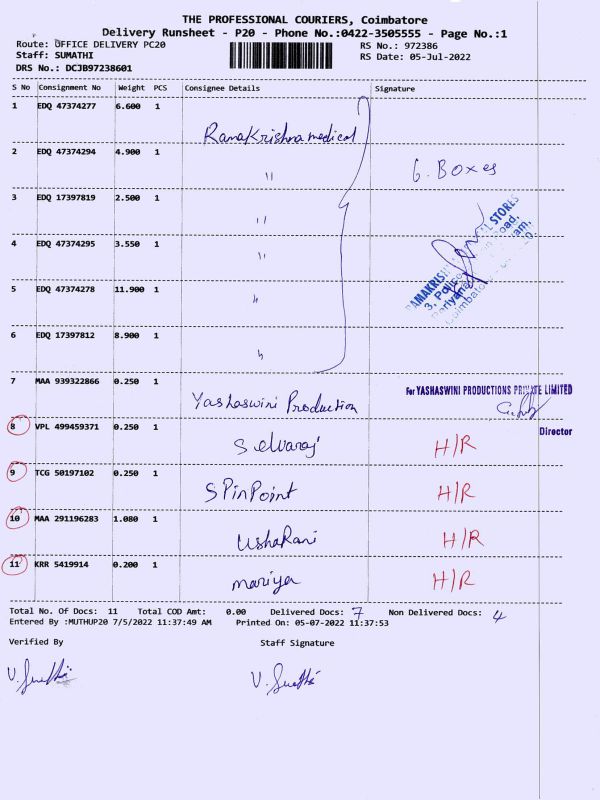 THE PROFESSIONAL COURIERS, Coimbatore
Delivery Runsheet - P20 - Phone No.:0422-3505555 - Page No.:1
Route: OFFICE DELIVERY PC20 RS No.: 972386
Staff: SUMATHI RS Date: 05-Jul-2022
DRS No.: DCJB97238601
S No Consignment No Weight PCS Consignee Details Signature
1 EDQ 47374277 6.600 1
Ramakrishna medical
2 EDQ 47374294 4.900 1
" 6. Boxes
3 EDQ 17397819 2.500 1
"
4 EDQ 47374295 3.550 1
"
5 EDQ 47374278 11.900 1
"
6 EDQ 17397812 8.900 1
"
STORES
3,
Coimbatore
7 MAA 939322866 0.250 1
Yashaswini Production For YASHASWINI PRODUCTIONS PRIVATE LIMITED
8 VPL 499459371 0.250 1 Director
Selvaraj H/R
9 TCG 50197102 0.250 1
SPinPoint H/R
10 MAA 291196283 1.080 1
UshaRani H/R
11 KRR 5419914 0.200 1
mariya H/R
Total No. Of Docs: 11 Total COD Amt: 0.00 Delivered Docs: 7 Non Delivered Docs: 4
Entered By :MUTHUP20 7/5/2022 11:37:49 AM Printed On: 05-07-2022 11:37:53
Verified By Staff Signature